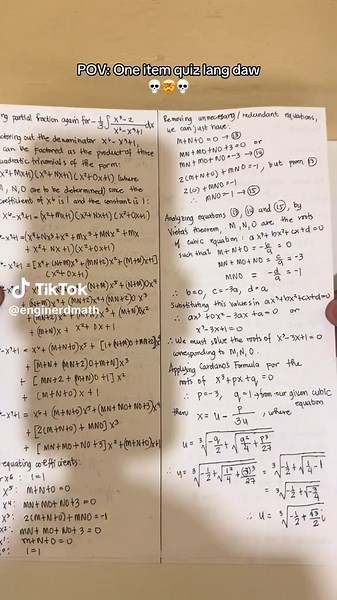 POV: One item quiz lang daw
💀🤯💀
ng partial fraction again for -1/3 ∫ x³-2 / x⁶-x³+1 dx
actoring out the denominator x⁶-x³+1,
can be factored as the product of three
uadratic trinomials of the form:
x²+Mx+1)(x²+Nx+1)(x²+Ox+1) (where
, N, O are to be determined) since the
coefficient of x⁶ is 1 and the constant is 1:
x⁶-x³+1 = (x²+Mx+1)(x²+Nx+1)(x²+Ox+1)
x⁶-x³+1 = (x⁴+Nx³+x²+Mx³+MNx²+Mx
+x²+Nx+1)(x²+Ox+1)
-x³+1 = [x⁴+(N+M)x³+(MN+2)x²+(M+N)x+1]
(x²+Ox+1)
+(M+N)x + x²+Ox+1
-x³+1 = x⁶+(M+N+O)x⁵+
+[M+N+(MN+2)O+M+N]x³
+[MN+2+(M+N)O+1]x²
+(M+N+O)x+1
-x³+1 = x⁶+(M+N+O)x⁵+(MN+MO+NO+3)x⁴
+[2(M+N+O)+MNO]x³
+[MN+MO+NO+3]x²+(M+N+O)x+1
equating coefficients:
x⁶: 1=1
x⁵: M+N+O=0
x⁴: MN+MO+NO+3=0
x³: 2(M+N+O)+MNO=-1
x²: MN+MO+NO+3=0
x¹: M+N+O=0
x⁰: 1=1
TikTok
@enginerdmath
Removing unnecessary/redundant equations,
we can just have:
M+N+O=0 → ⑬
MN+MO+NO+3=0 or
MN+MO+NO=-3 → ⑭
2(M+N+O)+MNO=-1, but from ⑬
2(0)+MNO=-1
∴ MNO=-1 → ⑮
Analyzing equations ⑬, ⑭ and ⑮, by
Vieta's theorem, M, N, O are the roots
of cubic equation: ax³+bx²+cx+d=0
such that M+N+O = -b/a = 0
MN+MO+NO = c/a = -3
MNO = -d/a = -1
∴ b=0, c=-3a, d=a
Substituting this values in ax³+bx²+cx+d=0
∴ ax³+0x²-3ax+a=0 or
x³-3x+1=0
∴ We must solve the roots of x³-3x+1=0
corresponding to M, N, O.
∴ Applying Cardano's Formula for the
roots of x³+px+q=0
∴ p=-3, q=1 → from our given cubic
equation
then x = u - p/3u, where
u = ∛(-q/2 + √(q²/4 + p³/27))
∴ u = ∛(-1/2 + √(1²/4 + (-3)³/27)) = ∛(-1/2 + √(1/4 - 1))
= ∛(-1/2 + √(-3/4))
∴ u = ∛(-1/2 + √3/2 i)